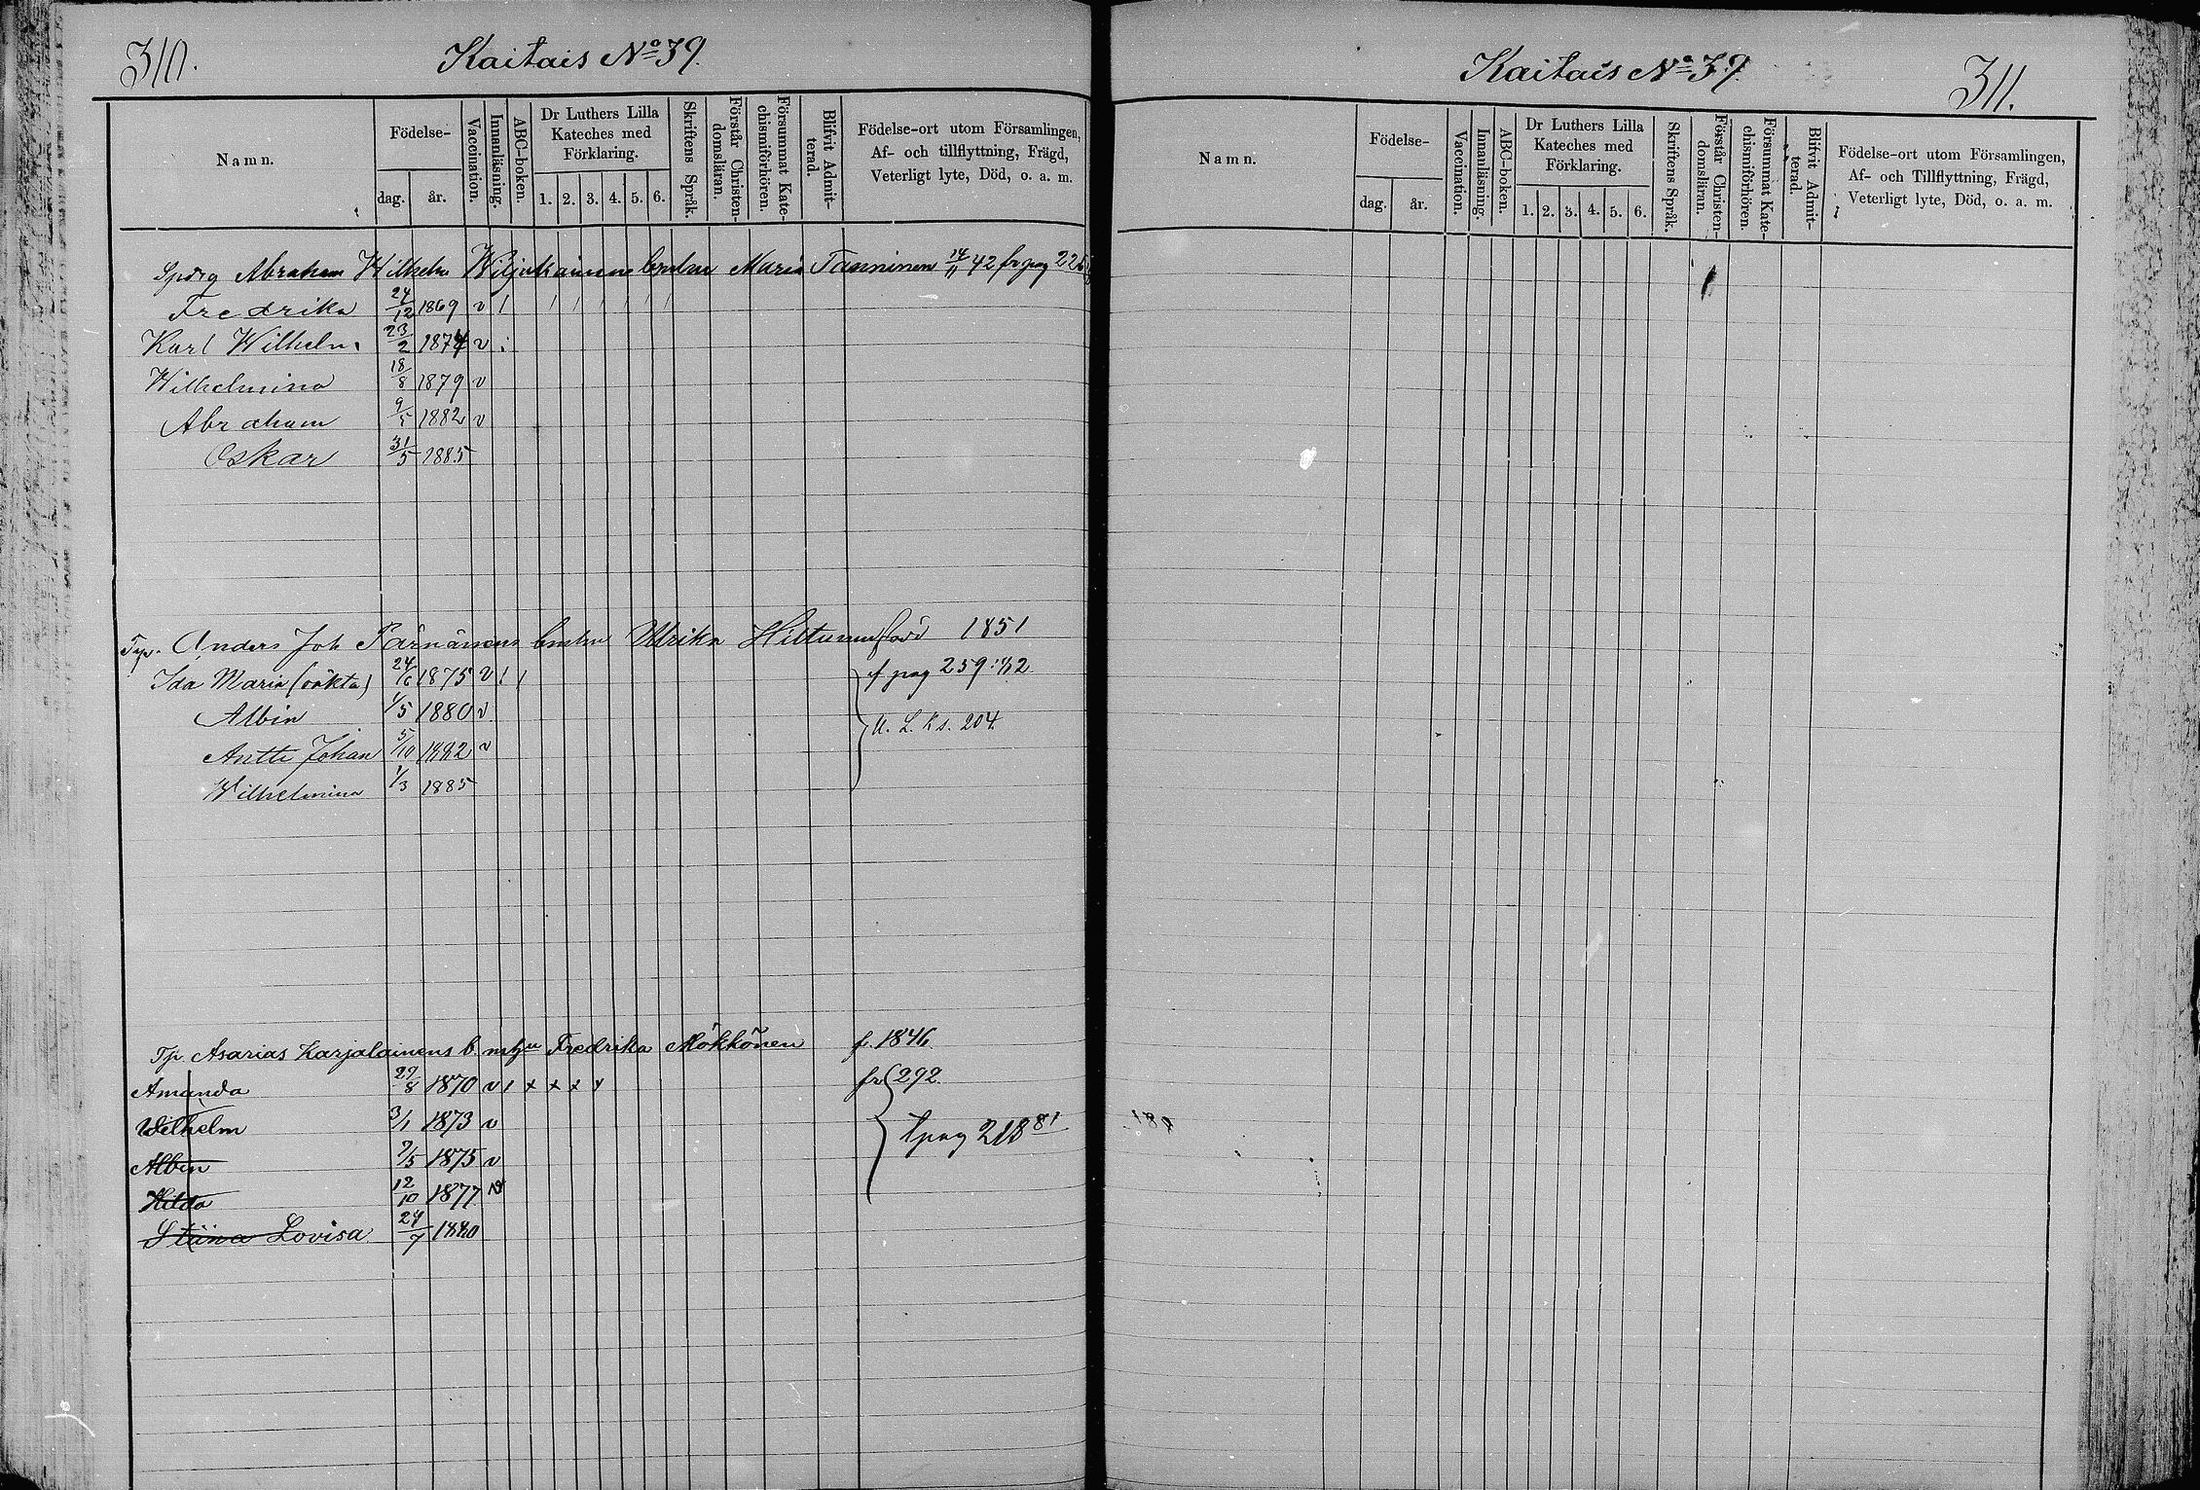 310.
Kaitais No 39.
Namn.
Födelse-
dag.
år.
Vaccination.
Innanläsning.
ABC-boken.
Dr Luthers Lilla
Kateches med
Förklaring.
1. 2. 3. 4. 5. 6.
Skriftens Språk.
Förstår Christen-
domsläran.
Försummat Kate-
chismiförhören.
Blifvit Admit-
terad.
Födelse-ort utom Församlingen,
Af- och tillflyttning, Frägd,
Veterligt lyte, Död, o. a. m.
Abraham Wilhelm Maria Tanninen 14/11 42 fr pag
Fredrika 24/12 1869 v
Karl Wilhelm 23/2 1874 v
Wilhelmina 18/8 1879 v
Abraham 9/5 1882 v
Oskar 31/5 1885
Anders Joh Pärnänens Ulrika Hiltunen född 1851
Ida Maria (oäkta) 24/6 1875 v f pag 259
Albin 1/5 1880 v
U. L. ks. 204
Antti Johan 5/10 1882 v
Wilhelmina 1/3 1885
Tp. Asarias Karjalainens Fredrika Mökkönen f. 1846
Amanda 27/8 1870 v / x x x x fr 292.
Wilhelm 3/1 1873 v
t pag 218 81
Albin 2/5 1875 v
Hilda 12/10 1877 v
Stiina Lovisa 24/7 1880
Kaitais No 39
311.
Namn.
Födelse-
dag.
år.
Vaccination.
Innanläsning.
ABC-boken.
Dr Luthers Lilla
Kateches med
Förklaring.
1. 2. 3. 4. 5. 6.
Skriftens Språk.
Förstår Christen-
domsläran.
Försummat Kate-
chismiförhören.
Blifvit Admit-
terad.
Födelse-ort utom Församlingen,
Af- och Tillflyttning, Frägd,
Veterligt lyte, Död, o. a. m.